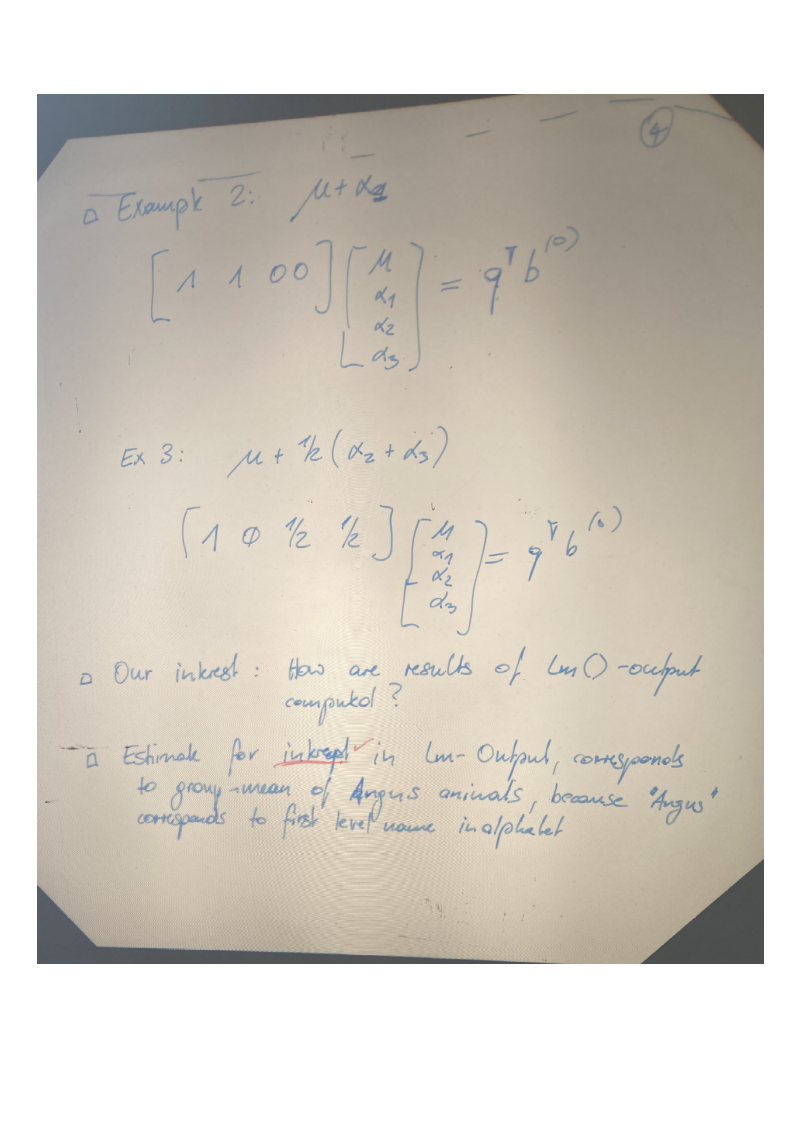 4
□ Example 2: μ + α1
[1 1 0 0] [μ α1 α2 α3] = qᵀb⁽⁰⁾
Ex 3: μ + 1/2 (α2 + α3)
[1 0 1/2 1/2] [μ α1 α2 α3] = qᵀb⁽⁰⁾
□ Our interest: How are results of lm()-output
computed?
□ Estimate for intercept ✓ in lm-Output, corresponds
to group-mean of Angus animals, because "Angus"
corresponds to first level name in alphabet